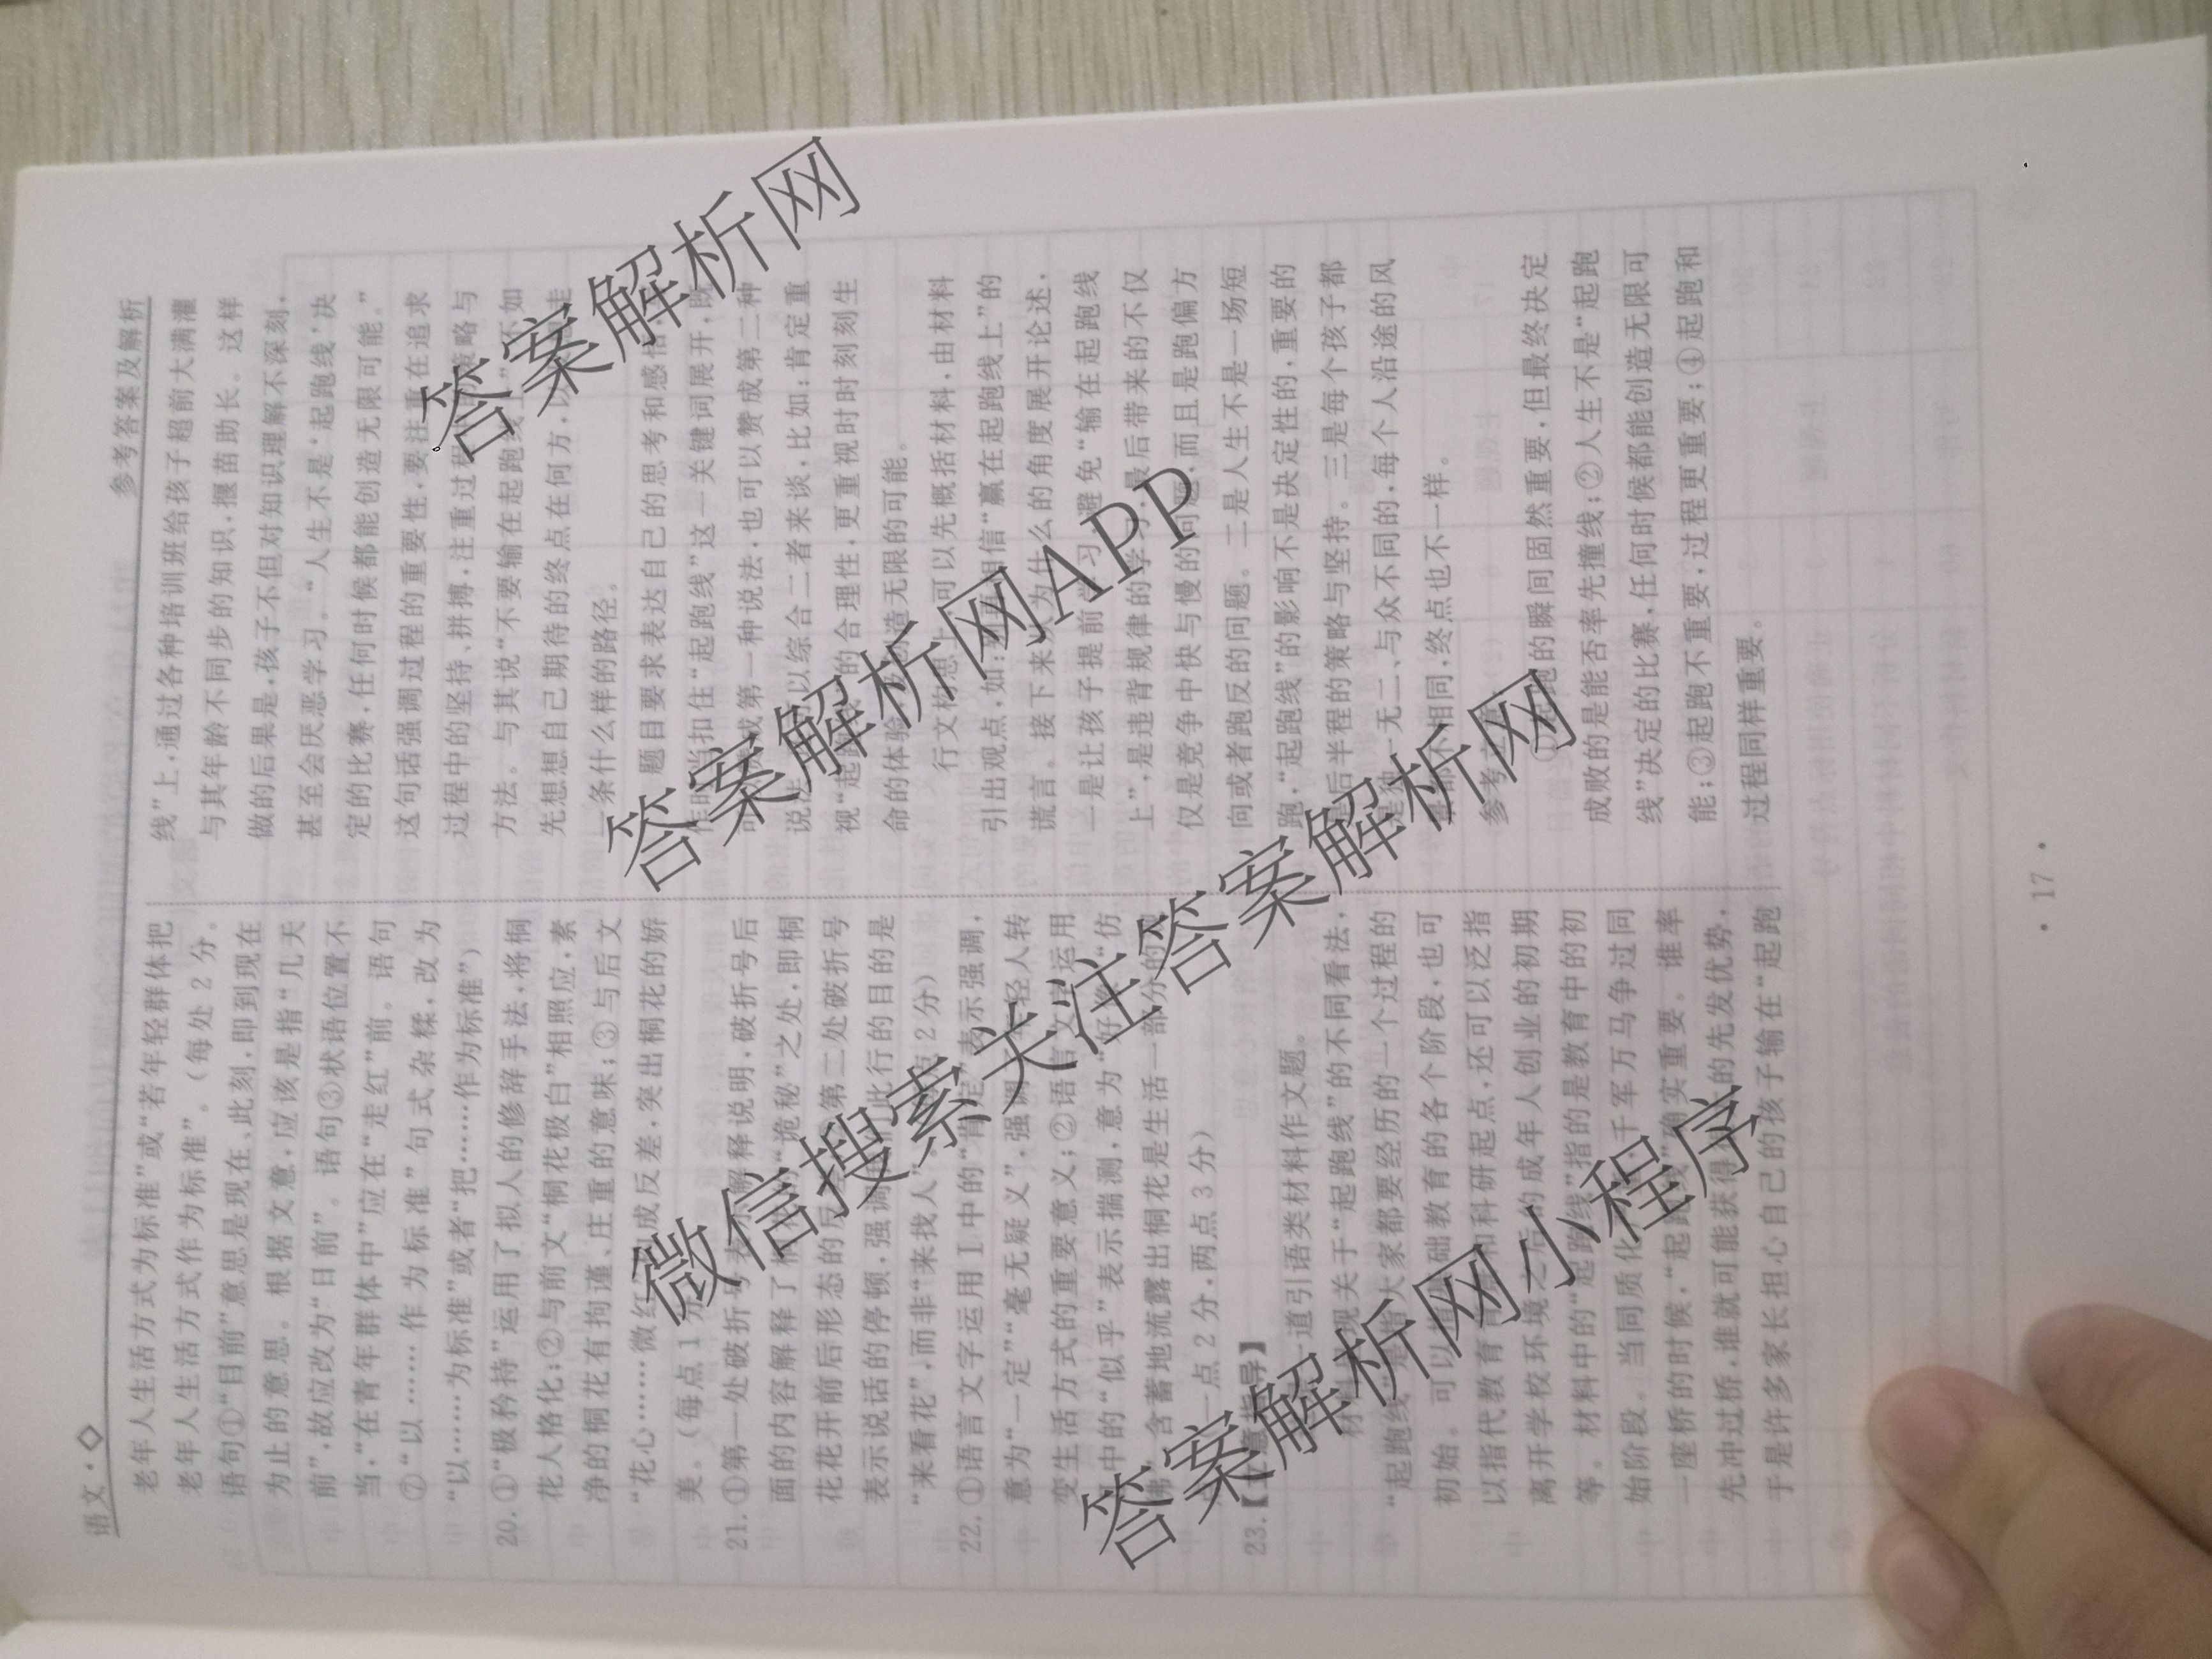 语文·◇
参考答案及解析
老年人生活方式为标准”或“若年轻群体把
老年人生活方式作为标准”。(每处2分。
语句①“目前”意思是现在、此刻,即到现在
为止的意思。根据文意,应该是指“几天
前”,故应改为“日前”。语句③状语位置不
当,“在青年群体中”应在“走红”前。语句
②“以……作为标准”句式杂糅,改为
“以……为标准”或者“把……作为标准”)
20.①“极矜持”运用了拟人的修辞手法,将桐
花人格化;②与前文“桐花极白”相照应,素
净的桐花有拘谨、庄重的意味;③与后文
“花心……微红 成反差,突出桐花的娇
美。(每点1
21.①第一处破折号 解释说明,破折号后
面的内容解释了 “诡秘”之处,即桐
花花开前后形态的反 第二处破折号
表示说话的停顿,强调 此行的目的是
“来看花”,而非“来找人 2分)
22.①语言文字运用Ⅰ中的“肯定”表示强调,
意为“一定”“毫无疑义”,强调 轻人转
变生活方式的重要意义;②语言文字运用
中的“似乎”表示揣测,意为“好像”“仿
佛”,含蓄地流露出桐花是生活一部分的
一点2分,两点3分)
23.【 指导】
一道引语类材料作文题。
材 现关于“起跑线”的不同看法,
“起跑线”是指大家都要经历的一个过程的
初始。可以 础教育的各个阶段,也可
以指代教育 和科研起点,还可以泛指
离开学校环境之后的成年人创业的初期
等。材料中的“起跑线”指的是教育中的初
始阶段。当同质化 千军万马争过同
一座桥的时候,“起跑线”确实重要。谁率
先冲过桥,谁就可能获得 的先发优势,
于是许多家长担心自己的孩子输在“起跑
线”上,通过各种培训班给孩子超前大满灌
与其年龄不同步的知识,揠苗助长。这样
做的后果是,孩子不但对知识理解不深刻,
甚至会厌恶学习。“人生不是‘起跑线’决
定的比赛,任何时候都能创造无限可能。”
这句话强调过程的重要性,要注重在追求
过程中的坚持、拼搏,注重过程 策略与
方法。与其说“不要输在起跑线 不如
先想想自己期待的终点在何方,以 走
一条什么样的路径。
题目要求表达自己的思考和感悟,
作时 当扣住“起跑线”这一关键词展开,既
可 成第一种说法,也可以赞成第二种
说法 以综合二者来谈,比如:肯定重
视“起 的合理性,更重视时时刻刻生
命的体验 造无限的可能。
行文构思上,可以先概括材料,由材料
引出观点,如: 相信“赢在起跑线上”的
谎言。接下来从为什么的角度展开论述,
一是让孩子提前学习 避免“输在起跑线
上”,是违背规律的学习,最后带来的不仅
仅是竞争中快与慢的问题,而且是跑偏方
向或者跑反的问题。二是人生不是一场短
跑,“起跑线”的影响不是决定性的,重要的
是后半程的策略与坚持。三是每个孩子都
是独一无二、与众不同的,每个人沿途的风
景都不相同,终点也不一样。
参考立意:
①起跑的瞬间固然重要,但最终决定
成败的是能否率先撞线;②人生不是“起跑
线”决定的比赛,任何时候都能创造无限可
能;③起跑不重要,过程更重要;④起跑和
过程同样重要。
·17·
答案解析网
答案解析网APP
微信搜索关注答案解析网
答案解析网小程序